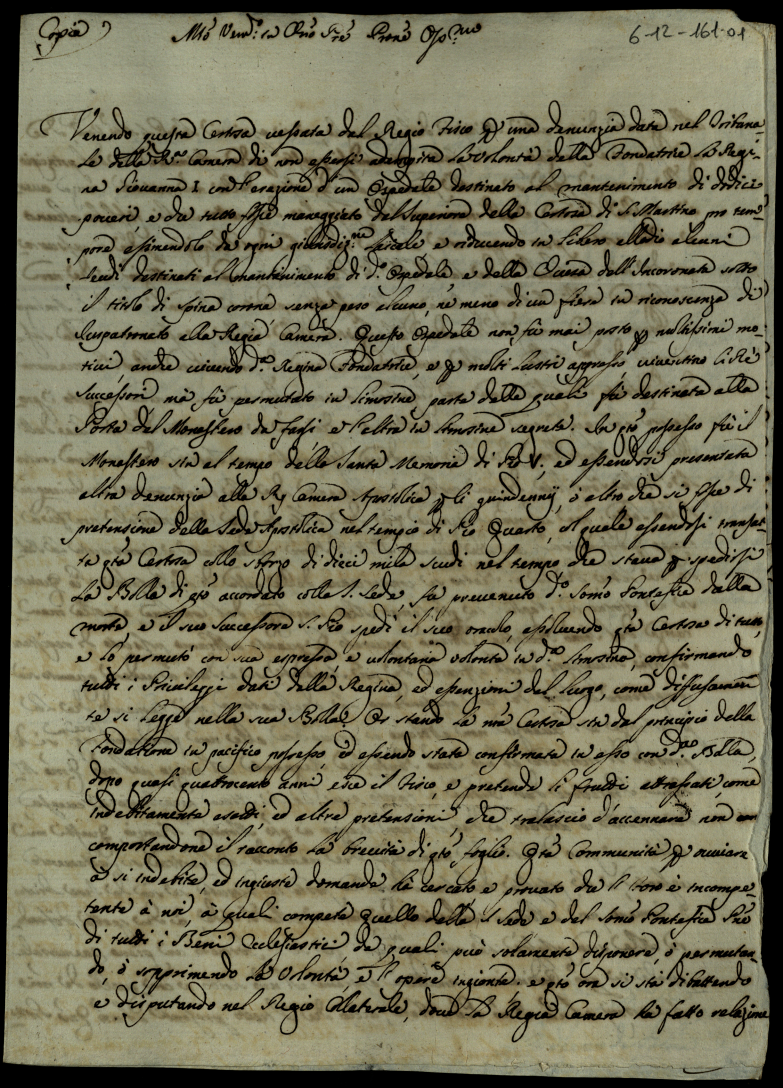 Copia
Mto Vendo in Cño Prē Prōne Ossmo
6-12-161.01
Venendo questa Certosa vessata dal Regio Fisco per una denunzia data nel Tribuna-
le della Rª Camera di non essersi adempita la volontà della Fondatrice la Regi-
na Giovanna I con l'erezione d'un Ospedale destinato al mantenimento di dodici
poveri, e che tutto fosse maneggiato dal Superiore della Certosa di S. Martino pro tem-
pore esimendolo da ogni giurisdizne fiscale e riducendo in libero allodio alcuni
feudi destinati al mantenimento di dº Ospedale e della Chiesa dell'Incoronata sotto
il titolo di spina corona senza peso alcuno, nè meno di un in riconoscenza di
Iuspatronato alla Regia Camera. Questo Ospedale non fù mai posto per moltissimi mo-
tivi, anche vivendo dª Regina Fondatrice, e per molti lustri appresso viventino li Rè
Successori mà fù permutato in limosina parte delle quali fù destinata alla
Porta del Monastero da farsi, e l'altra in limosine segrete. In qto possesso fù il
Monastero sin al tempo della Santa Memoria di Pio V; ed essendosi presentata
altra denunzia alla Rª Camera Apostolica per li quindennij, ò altro che si fosse di
pretensione della Sede Apostolica nel tempio di Pio Quarto, col quale essendosi transat-
ta qta Certosa collo sborzo di dieci mila scudi nel tempo che stava per spedirsi
la Bolla di qto accordato colla S. Sede, fù prevenuto dº Somō Pontefice dalla
morte, e il suo Successore S. Pio spedì il suo oracolo, assolvendo qta Certosa di tutto,
e lo permutò con sua espressa, e volontaria volontà in dª limosina, confirmando
tutti i Privileggi dati dalla Regina, ed essenzioni del luogo, come diffusamen-
te si legge nella sua Bolla. Or stando la nrā Certosa sin dal principio della
Fondazione in pacifico possesso, ed essendo stata confirmata in esso con dª Bolla,
dopo quasi quattrocento anni esce il Fisco, e pretende li frutti attrassati, come
indebitamente esatti, ed altre pretensioni, che tralascio d'accennare non
comportandone il racconto la brevità di qto foglio. Qta Communità per ovviare
à si indebite, ed ingiuste domande hà cercato e provato che il Foro è incompe-
tente à noi, à quali compete quello della S. Sede e del Somō Pontefice Prē
di tutti i Beni Ecclesiastici de quali può solamente disponere, ò permutan-
do, ò sopprimendo la volontà, e l'opere ingionte. e qto ora si stà dibattendo
e disputando nel Regio Collaterale, dove la Regia Camera hà fatto relazione